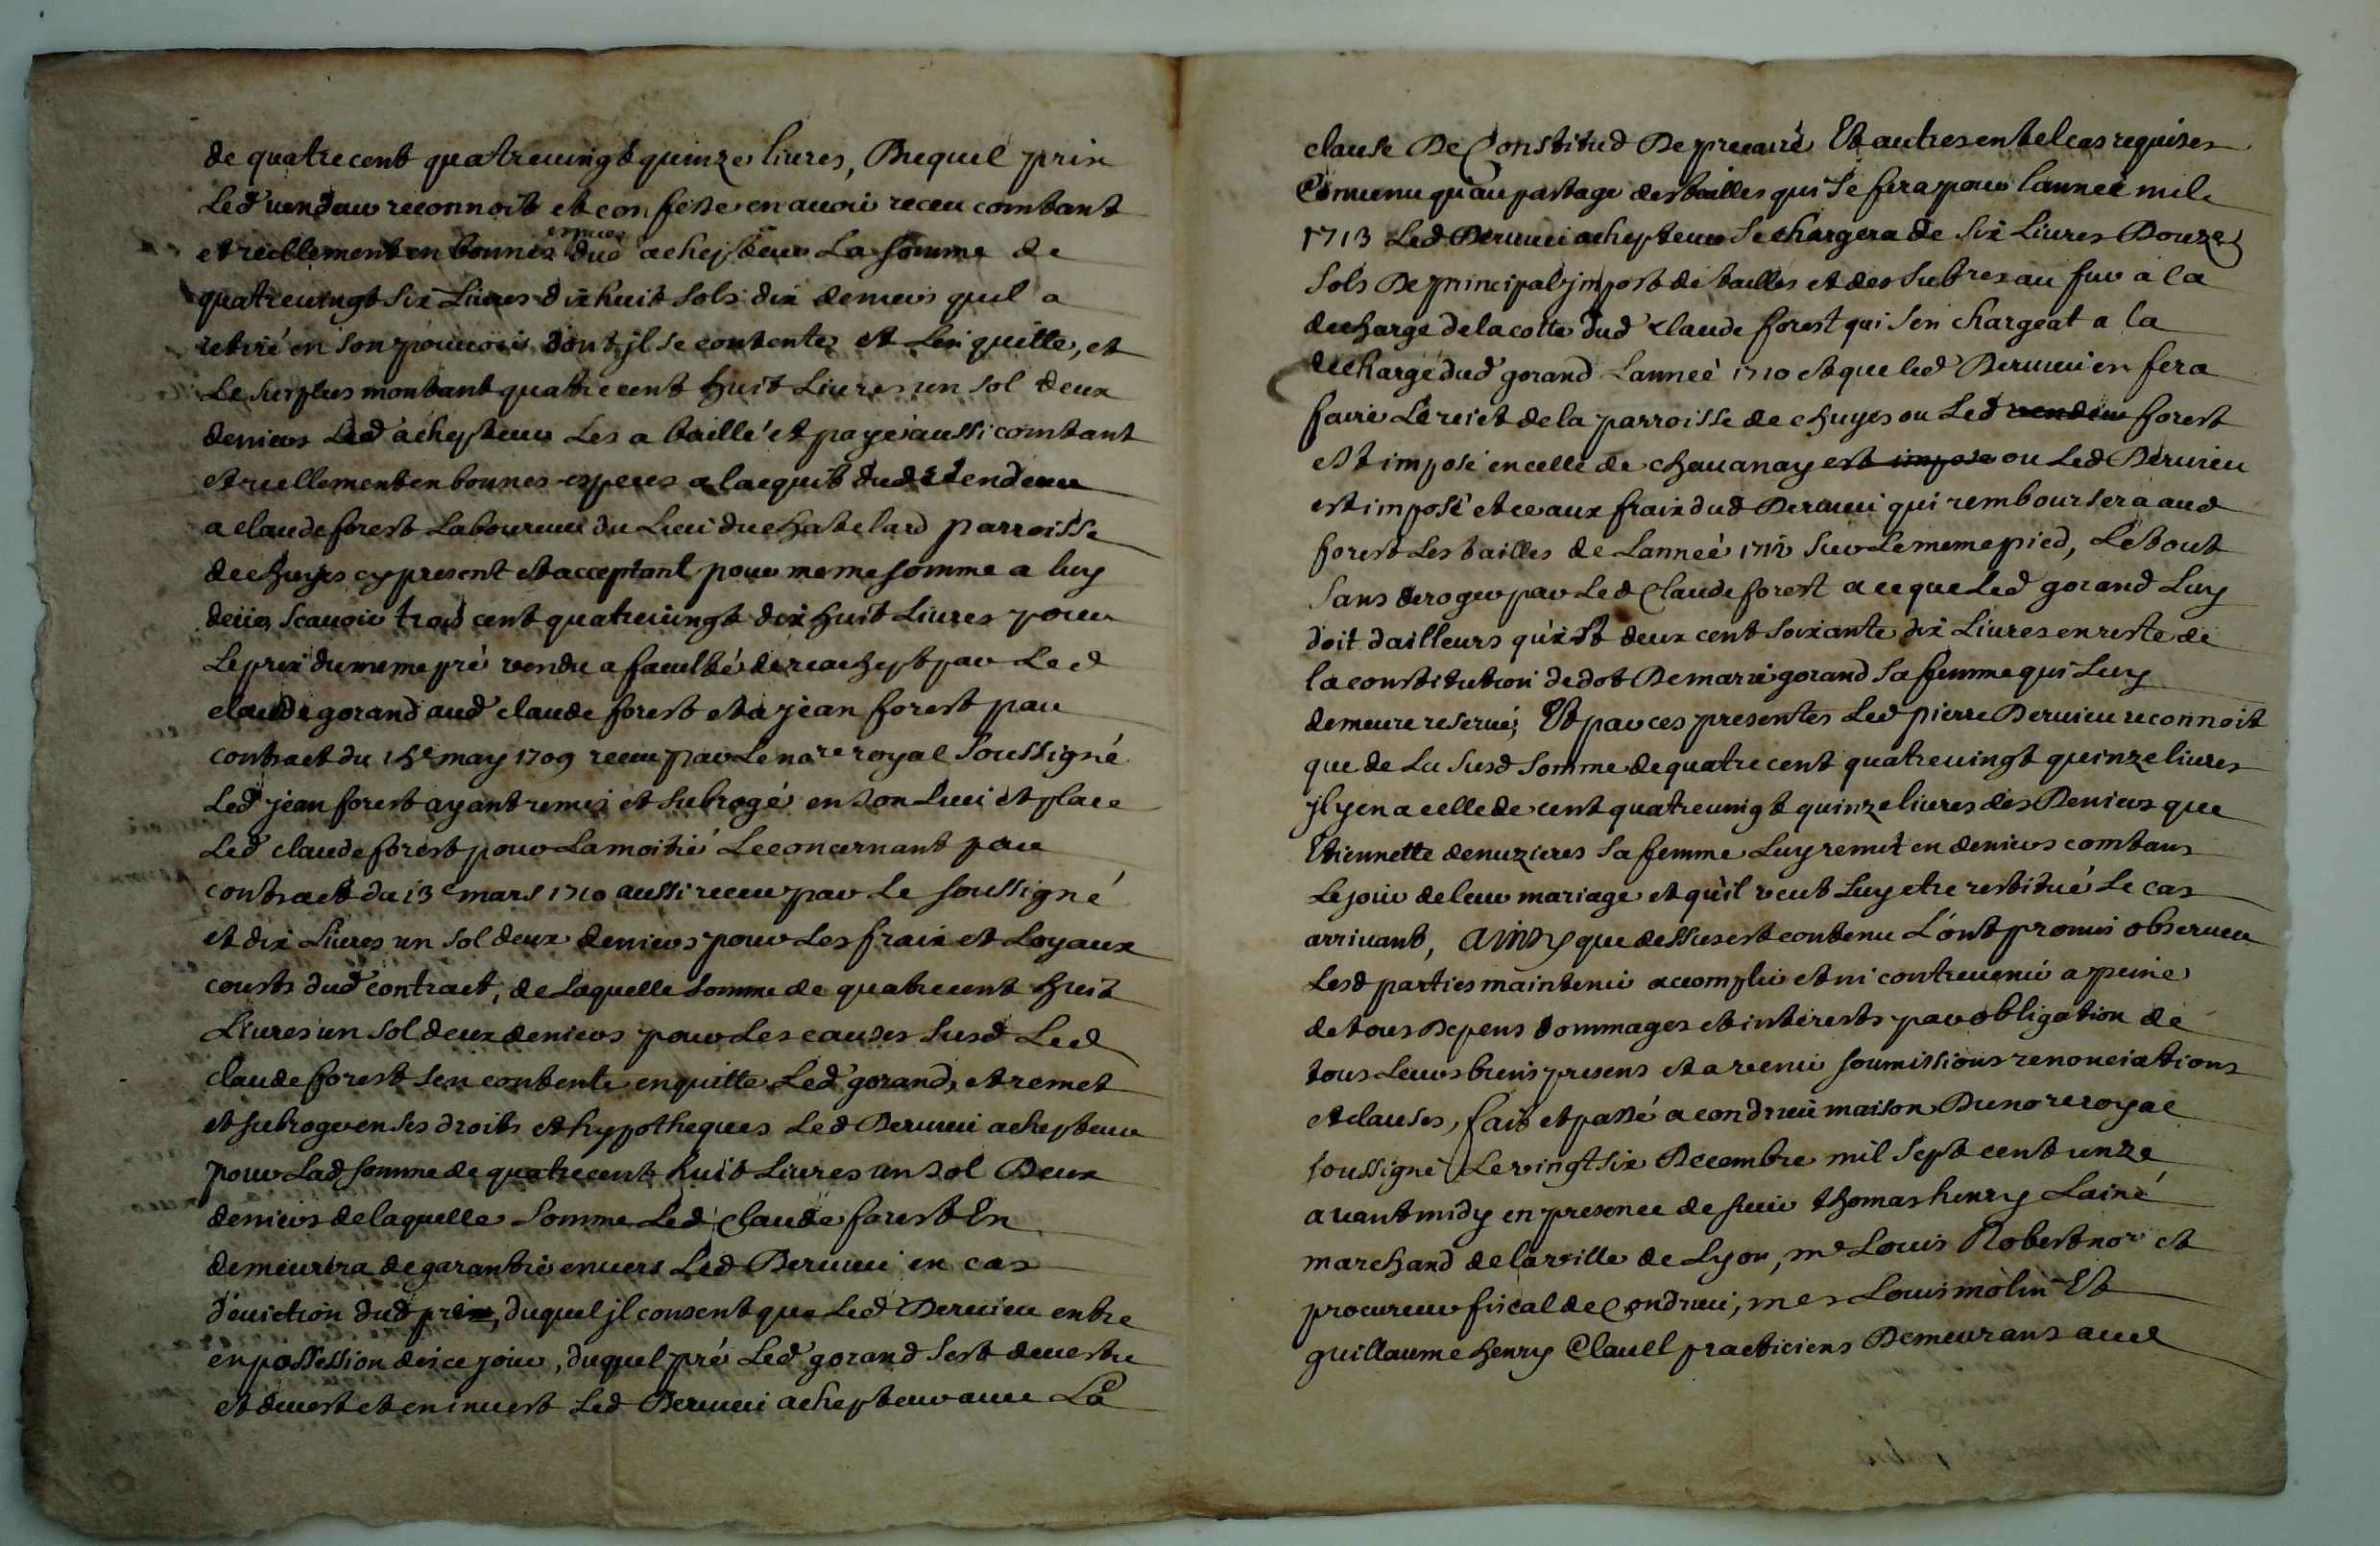 de quatre cent quatreuingt quinze liures, Duquel prix
Led vendeur reconnoit et confesse en auoir receu contant
et reellement en bonnes especes dud achepteur La somme de
quatreuingt six Liures dix huit sols dix deniers quil a
retiré en son pouuoir dont jl se contente et Len quitte, et
Le surplus montant quatre cent huit Liures un sol deux
deniers Led achepteur Les a baillé et payé aussi contant
et reellement en bonnes especes a lacquit dud vendeur
a claude forest Laboureur du Lieu du chatelard parroisse
de chuyes cy present et acceptant pour meme somme a luy
deüe, scauoir trois cent quatreuingt dix huit Liures pour
Le prix du meme pré vendu a faculté de reachept par Led
claude gorand aud claude forest et a jean forest par
contract du 15e may 1709 receu par Le nore royal soussigné
Led jean forest ayant remis et subrogé en son Lieu et place
Led claude forest pour La moitié Le concernant par
contract du 13e mars 1710 aussi receu par Le soussigné
et dix Liures un sol deux deniers pour Les fraix et Loyaux
cousts dud contract, de Laquelle somme de quatre cent huit
Liures un sol deux deniers pour Les causes susd Led
claude forest sen contente en quitte Led gorand, et remet
et subroge en ses droits et hypotheques Led Deruieu achepteur
pour Lad somme de quatre cent huit Liures un sol Deux
deniers de laquelle somme Led claude forest En
demeurera de garantie enuers Led Deruieu en cas
d'euiction dud pré, duquel jl consent que Led Deruieu entre
en possession des ce jour, duquel pré Led gorand sest deuestu
et deuest et en inuest Led Deruieu achepteur auec La
clause De Constitud De precaire Et autres en tel cas requises
Conuenu qu'au partage des tailles qui se fera pour l'année mil
1713 Led Deruieu achepteur se chargera de six Liures Douze
sols De principal jmpost de tailles et des subres au fur a la
decharge de la cotte dud claude forest qui sen chargeat a la
decharge dud gorand Lannéé 1710 et que led Deruieu en fera
faire Le reiet de la parroisse de chuyes ou Led vendeur forest
est imposé en celle de chauanay est imposé ou Led Deruieu
est imposé et ce aux fraix dud Deruieu qui remboursera aud
forest Les tailles de Lannéé 1712 sur Le meme pied, Le tout
sans deroger par Led Claude forest a ce que Led gorand Luy
doit dailleurs qu'est deux cent soixante dix Liures en reste de
la constitution de dot De marie gorand sa femme qui Luy
demeure reserué; Et par ces presentes Led pierre Deruieu reconnoit
que de La susd somme de quatre cent quatreuingt quinze liures
jl y en a celle de cent quatreuingt quinze liures des Deniers que
Etiennette denuzieres sa femme Luy remit en deniers contans
Le jour de leur mariage et qu'il veut Luy etre restitué Le cas
arriuant, Ainsy que dessus est contenu L'ont promis obseruer
Lesd parties maintenir accomplir et ni contreuenir a peine
de tous Depens dommages et interests par obligation de
tous Leurs biens presens et a venir soumissions renonciations
et clauses, fait et passé a condrieu maison Du nore royal
soussigné Le vingt six Decembre mil sept cent unze
auant midy en presence de sieur thomas henry Lainé
marchand de la ville de Lyon, me Louis Robert nore et
procureur fiscal de Condrieu, mes Louis molin Et
guillaume henry Clauel practiciens Demeurans aud